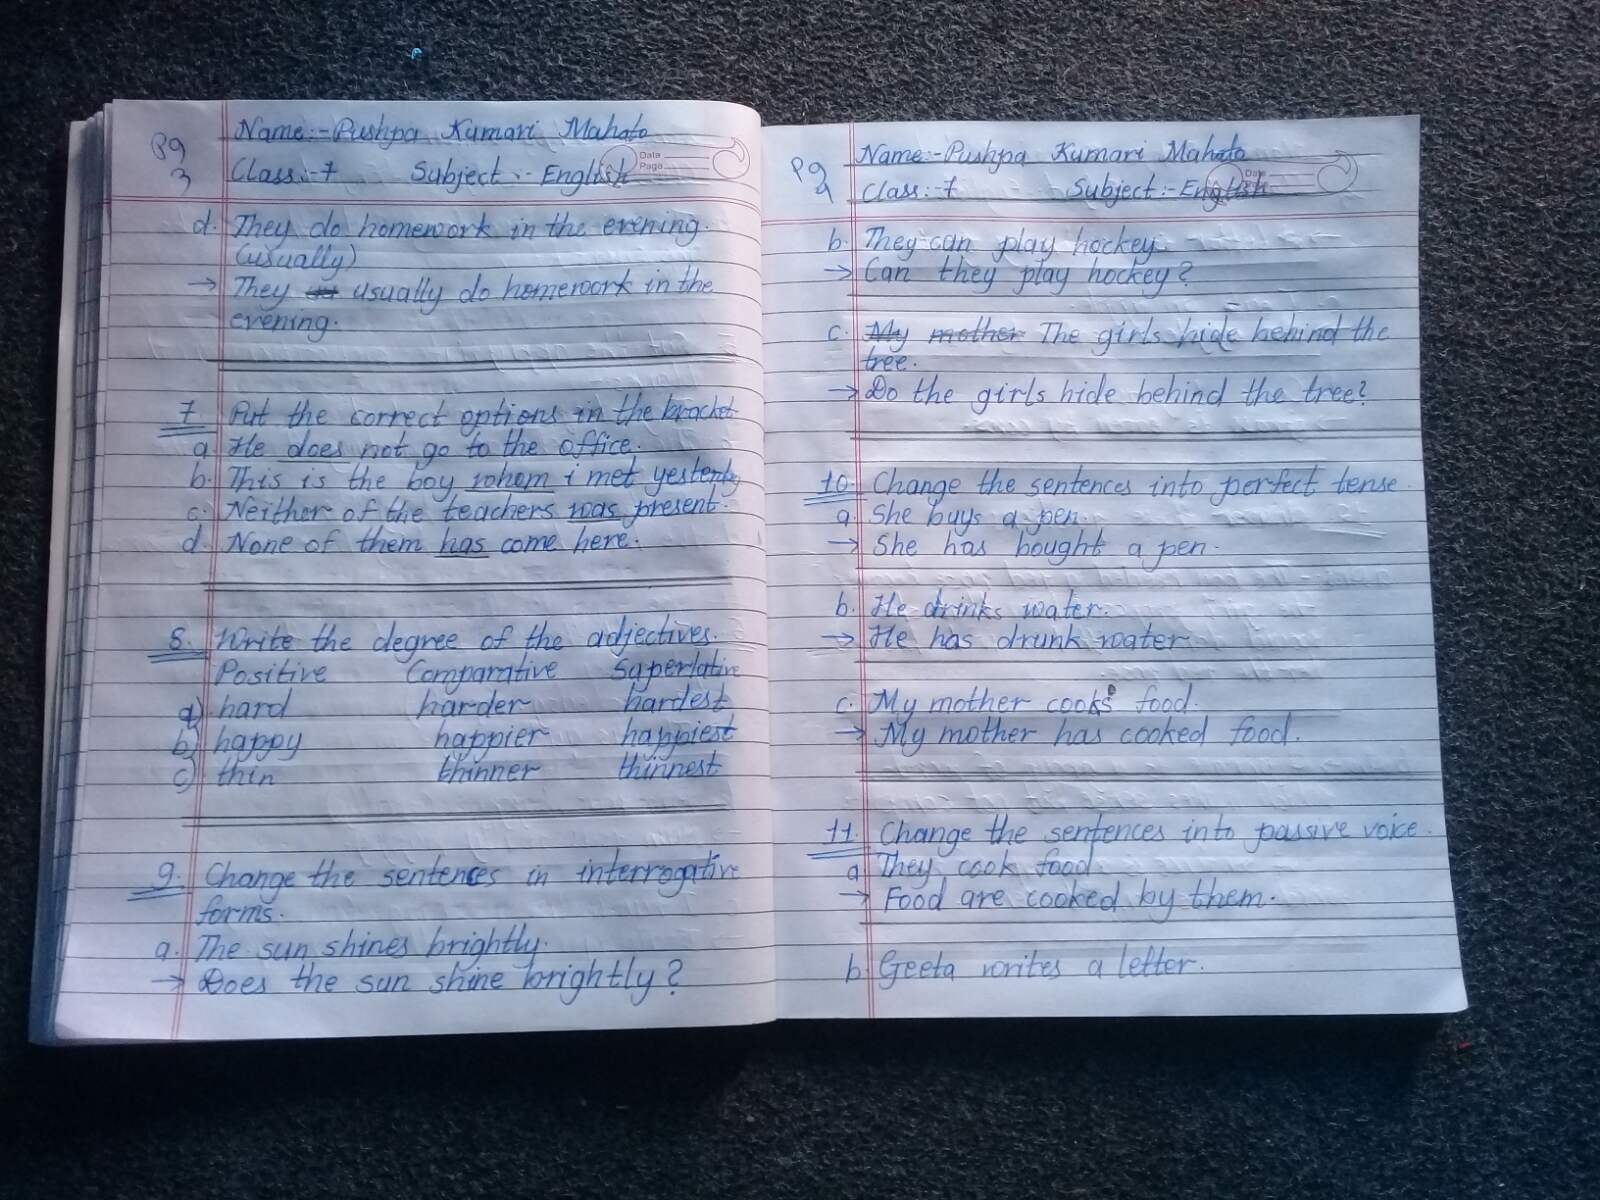 Pg 3
Name:- Pushpa Kumari Mahato
Date
Page
Class:-7 Subject:- English
d. They do homework in the evening.
(usually)
→ They usually do homework in the
evening.
7. Put the correct options in the bracket
a. He does not go to the office.
b. This is the boy whom i met yesterday
c. Neither of the teachers was present.
d. None of them has come here.
8. Write the degree of the adjectives.
Positive Comparative Superlative
a) hard harder hardest
b) happy happier happiest
c) thin thinner thinnest
9. Change the sentences in interrogative
forms.
a. The sun shines brightly.
→ Does the sun shine brightly?
Pg 4
Name:- Pushpa Kumari Mahato
Date
Class:-7 Subject:- English
b. They can play hockey.
→ Can they play hockey?
c. My mother The girls hide behind the
tree.
→ Do the girls hide behind the tree?
10. Change the sentences into perfect tense.
a. She buys a pen.
→ She has bought a pen.
b. He drinks water.
→ He has drunk water
c. My mother cooks food.
→ My mother has cooked food.
11. Change the sentences into passive voice.
a They cook food.
→ Food are cooked by them.
b. Geeta writes a letter.